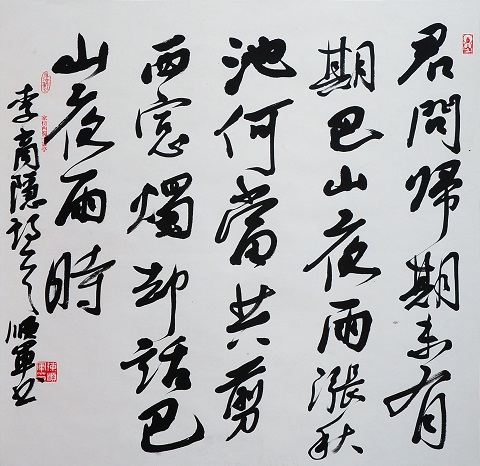 君問歸期未有
期巴山夜雨漲秋
池何當共剪
西窓燭却話巴
山夜雨時
李商隱詩一首順軍书